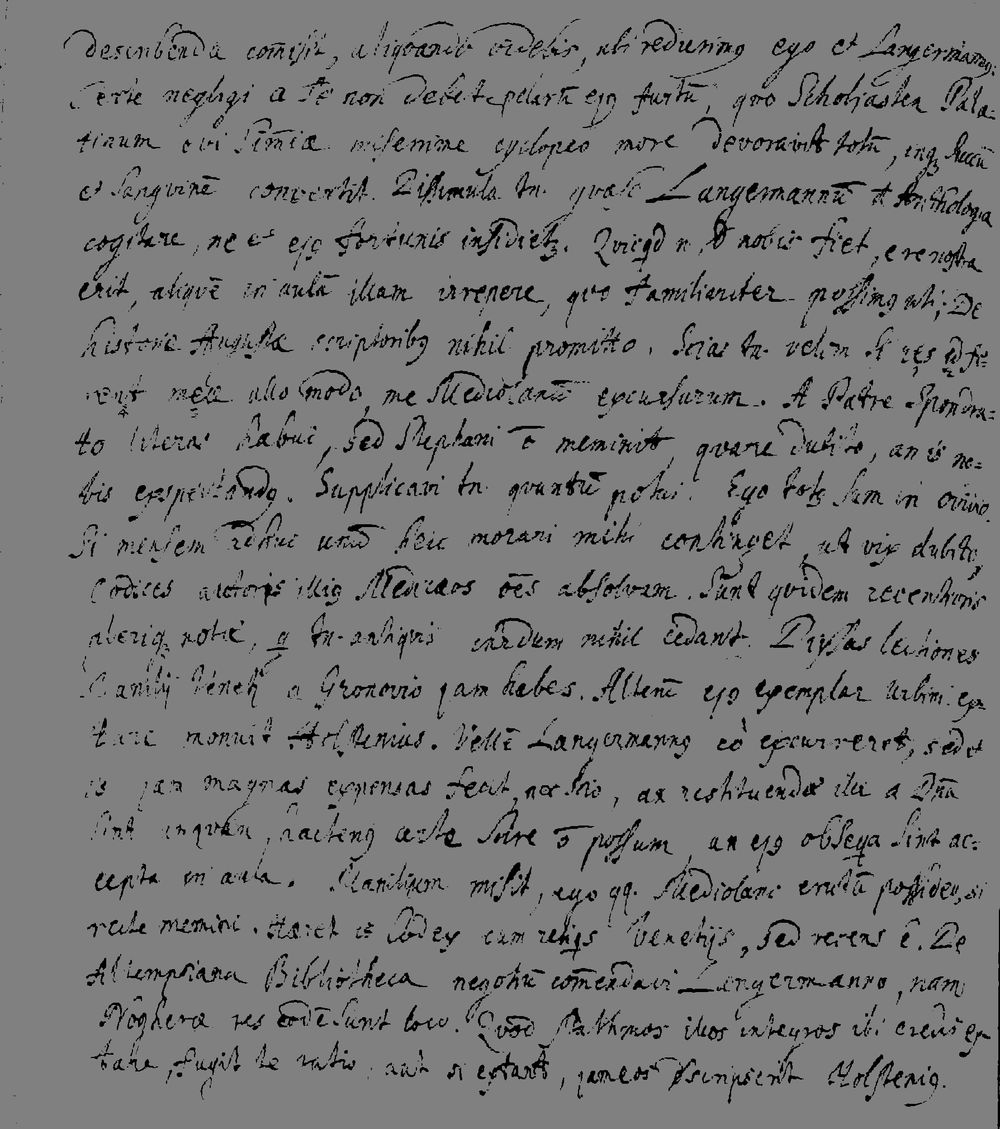 describenda com̄isit, aliqvando videbis, ubi redierimq ego et Langermannq.
Certe negligi a te non debet ejq furtū, qvo Scholiasten Pala-
tinum ovi Simiæ miserrime cyclopeo more devoravit totū, inqz succū
et sangvinē convertit. Dissimula tn. qvæso Langermannū d Anthologia
cogitare, ne et ejq fortunis insidietz. Qvicqd n. d nobis fiet, e re nostra
erit, aliqvē in aulā illam irrepere, qvo familiariter possimq uti; De
historiæ Augustæ scriptoribq nihil promitto. Scias tn. velim si res id fe-
rent meæ ullo modo, me Mediolanū excursurum. A Patre Spondra-
to literas habui, sed Stephani ō meminit, qvare dubito, an is no-
bis exspectandq. Supplicavi tn. qvantū potui. Ego totq sum in
Si mensem adhuc unū heic morari mihi continget, ut vix dubito,
Codices autoris illiq Mediceos oēs absolvam. Sunt qvidem recentioris
pleriqz notæ, q tn. antiqvis interdum nihil cedant. Diversas lectiones
Manilij Veneti a Gronovio jam habes. Alterū ejq exemplar Urbini ex-
tare monuit Holstenius. Vellē Langermannq eò excurreret, sed et
is jam magnas expensas fecit, nec scio, an restituendæ illi a Dn̄a
sint unqvam, hactenq certe scire ō possum, an ejq obseqa sint ac-
cepta in aula. Manilium misit, ego qq. Mediolani erutū possideo, si
recte memini. Hæret is Codex cum reliqs Venetijs, sed recens ē. De
Altempsiana Bibliotheca negotiū com̄endavi Langermanno, nam
Nogheræ res eodē sunt loco. Qvod Pathmos illos integros ibi credis ex-
tare, fugit te ratio, aut si extant, jam eos Holsteniq.